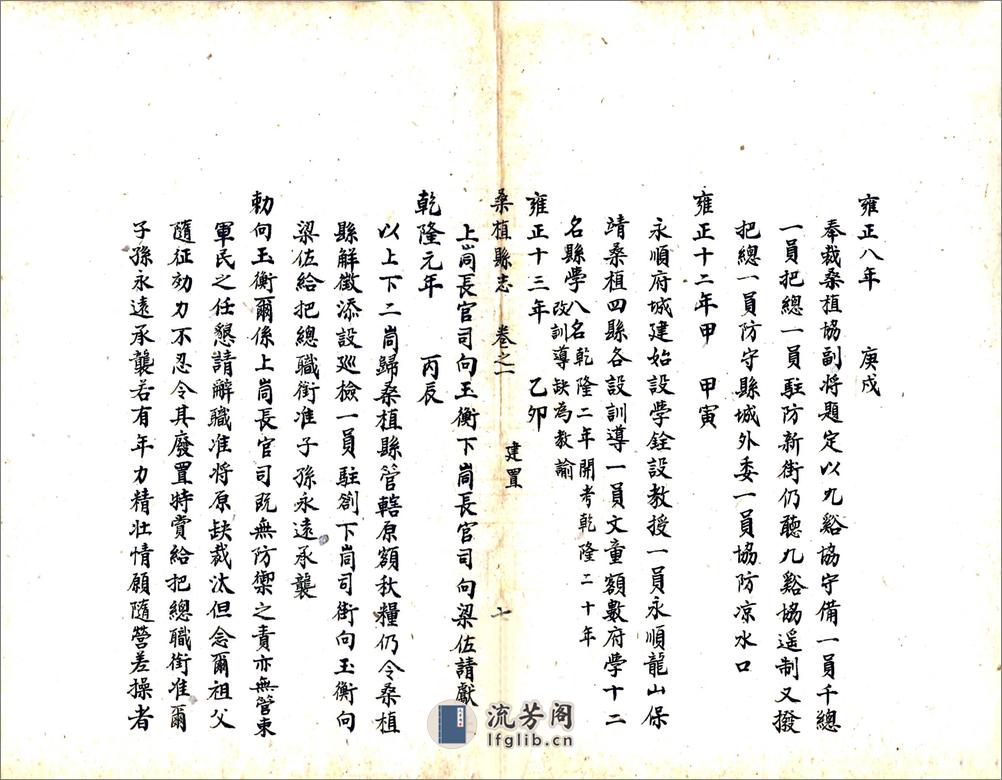 雍正八年　庚戌
奉裁桑植協副將題定以九谿協守備一員千總
一員把總一員駐防新街仍聽九谿協遥制又撥
把總一員防守縣城外委一員協防凉水口
雍正十二年甲　甲寅
永順府城建始設學銓設教授一員永順龍山保
靖桑植四縣各設訓導一員文童額數府學十二
名縣學八名乾隆二年開考乾隆二十年
改訓導缺為教諭
雍正十三年　乙卯
桑植縣志　卷之一　建置　七
上峝長官司向玉衡下峝長官司向梁佐請獻
乾隆元年　丙辰
以上下二峝歸桑植縣管轄原額秋糧仍令桑植
縣解徵添設巡檢一員駐劄下峝司街向玉衡向
梁佐給把總職銜准子孫永遠承襲
勅向玉衡爾係上峝長官司既無防禦之責亦無管束
軍民之任懇請辭職准將原缺裁汰但念爾祖父
隨征効力不忍令其廢置特賞給把總職銜准爾
子孫永遠承襲若有年力精壯情願隨營差操者
流芳阁
lfglib.cn